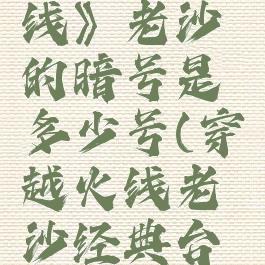 线》老沙
的暗号是
多少号(穿
越火线老
沙经典台